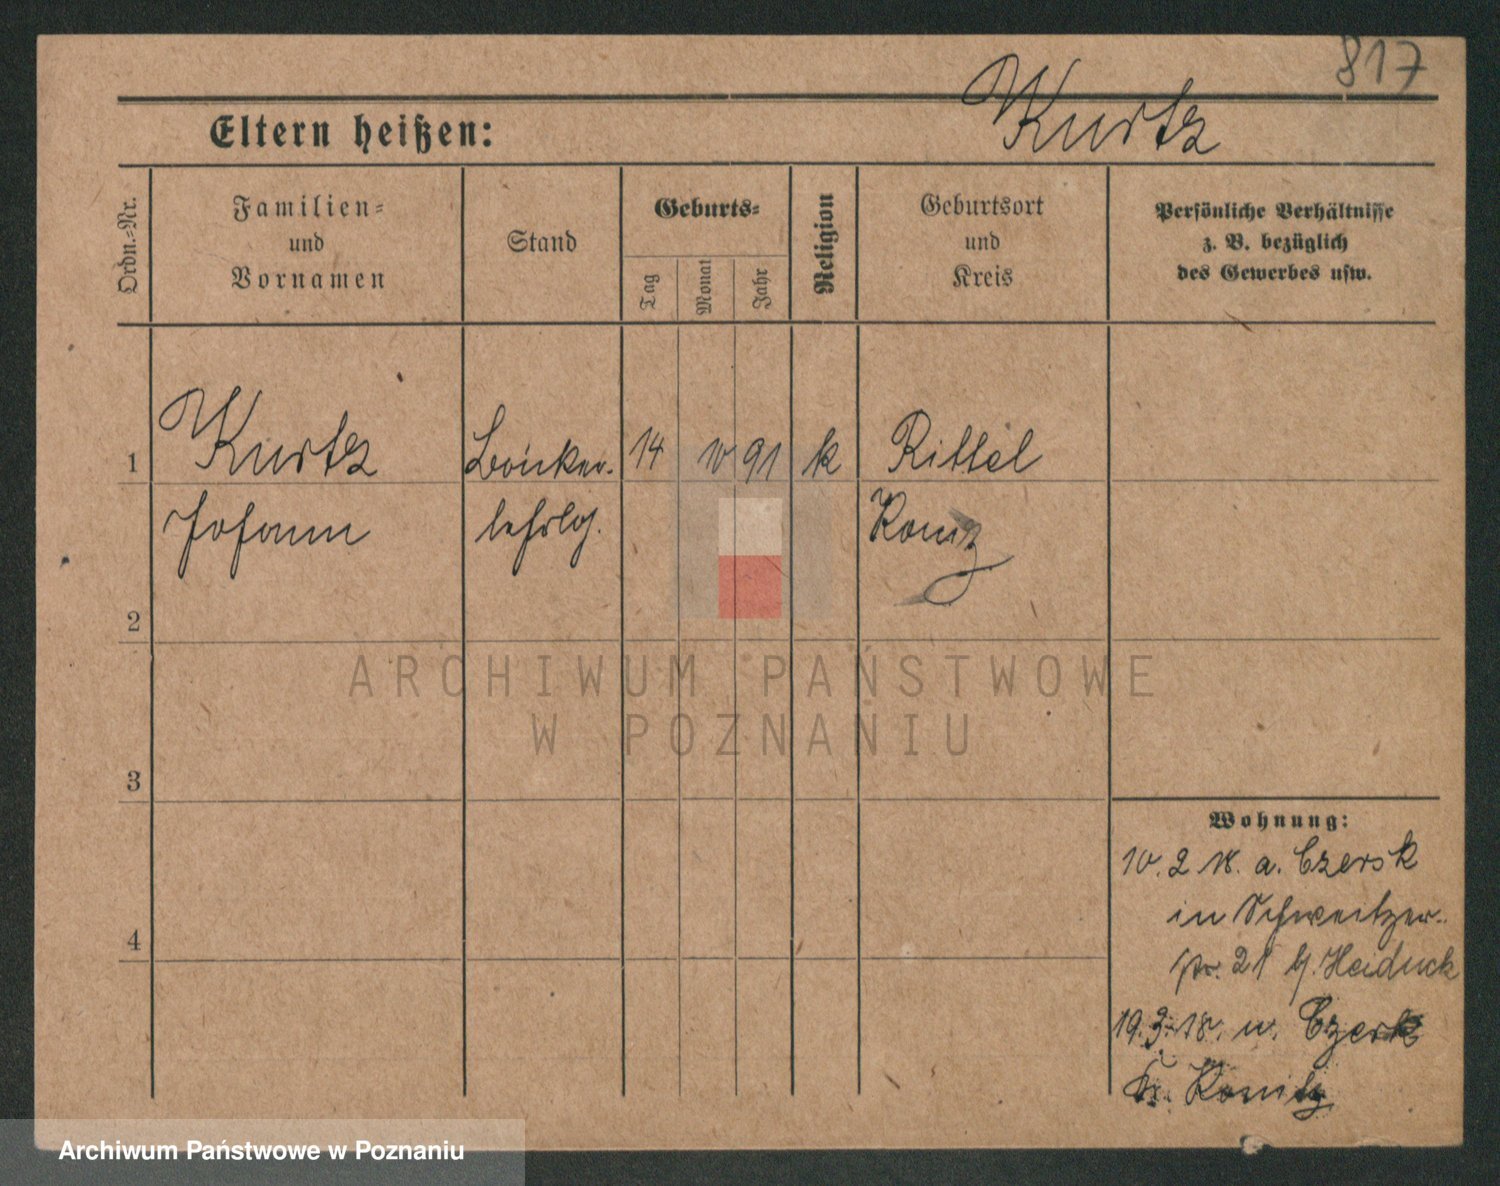 817
Kurtz
Eltern heißen:
Ordn.=Nr.
Familien=
und
Vornamen
Stand
Geburts=
Tag
Monat
Jahr
Religion
Geburtsort
und
Kreis
Persönliche Verhältnisse
z. B. bezüglich
des Gewerbes usw.
1
Kurtz
14 10 91 k Rittel
Johann
lehrlg.
Konitz
2
ARCHIWUM PAŃSTWOWE
W POZNANIU
3
Wohnung:
10. 2. 18. a. Czersk
in Schweitzer-
str. 21 b/. Heiduck
4
19. 3. 18. n. Czersk
Kr. Konitz
Archiwum Państwowe w Poznaniu